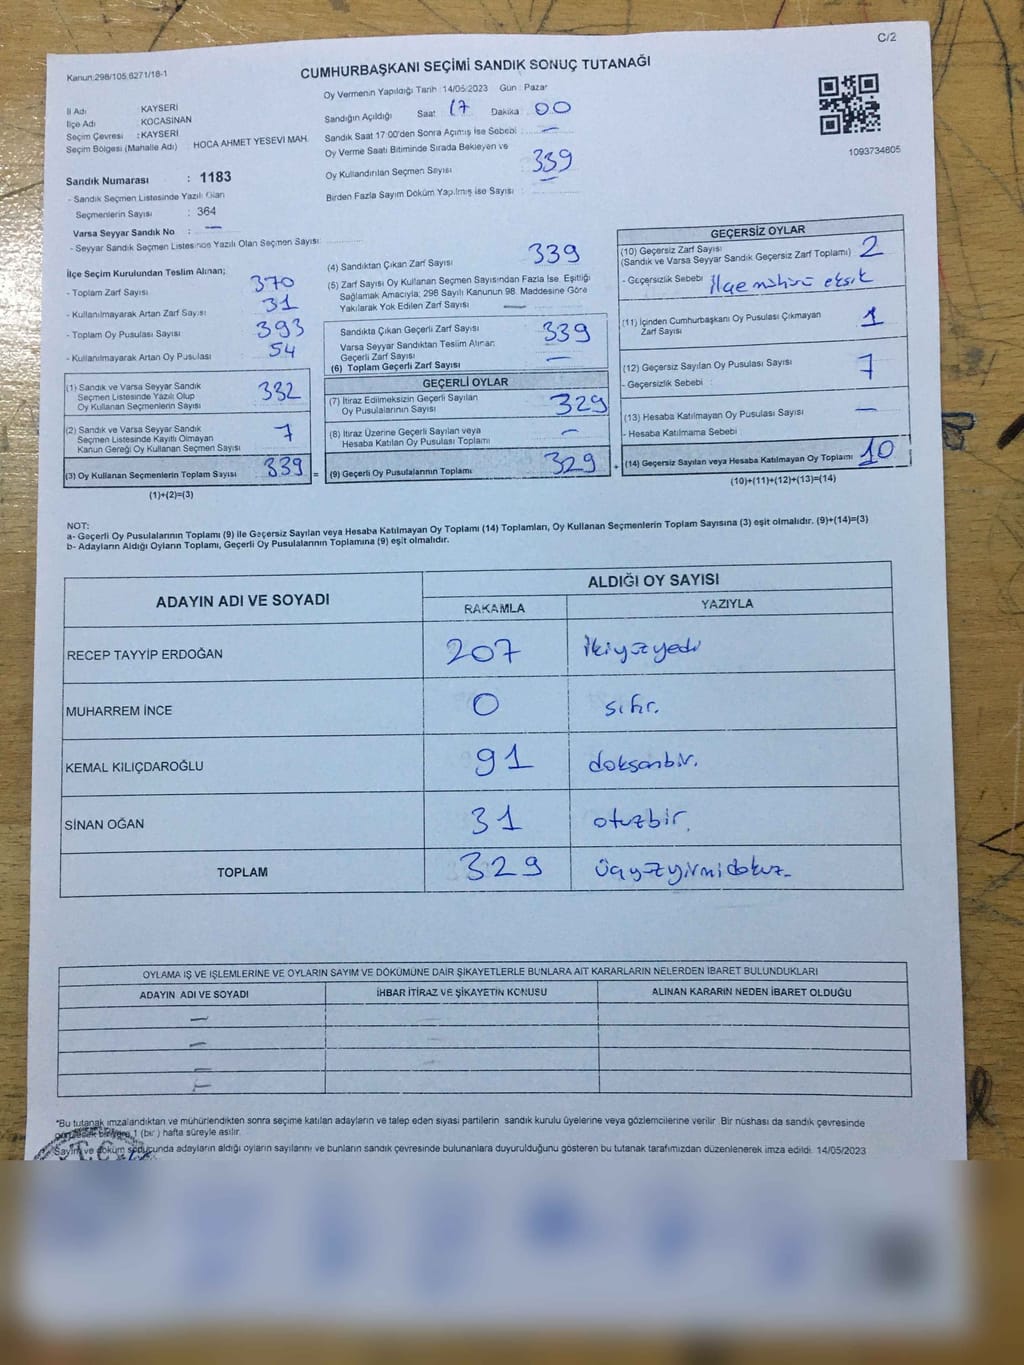 C/2
Kanun:298/105,6271/18-1
CUMHURBAŞKANI SEÇİMİ SANDIK SONUÇ TUTANAĞI
İl Adı KAYSERİ
İlçe Adı KOCASİNAN
Seçim Çevresi : KAYSERİ
Seçim Bölgesi (Mahalle Adı) HOCA AHMET YESEVİ MAH.
Sandık Numarası : 1183
- Sandık Seçmen Listesinde Yazılı Olan
Seçmenlerin Sayısı : 364
Varsa Seyyar Sandık No : —
- Seyyar Sandık Seçmen Listesinde Yazılı Olan Seçmen Sayısı
Oy Vermenin Yapıldığı Tarih : 14/05/2023 Gün : Pazar
Sandığın Açıldığı Saat 17 Dakika 00
Sandık Saat 17:00'den Sonra Açılmış İse Sebebi : —
Oy Verme Saati Bitiminde Sırada Bekleyen ve
Oy Kullandırılan Seçmen Sayısı : 339
Birden Fazla Sayım Döküm Yapılmış ise Sayısı :
1093734805
İlçe Seçim Kurulundan Teslim Alınan;
- Toplam Zarf Sayısı 370
- Kullanılmayarak Artan Zarf Sayısı 31
- Toplam Oy Pusulası Sayısı 393
- Kullanılmayarak Artan Oy Pusulası 54
(1) Sandık ve Varsa Seyyar Sandık
Seçmen Listesinde Yazılı Olup
Oy Kullanan Seçmenlerin Sayısı 332
(2) Sandık ve Varsa Seyyar Sandık
Seçmen Listesinde Kayıtlı Olmayan
Kanun Gereği Oy Kullanan Seçmen Sayısı 7
(3) Oy Kullanan Seçmenlerin Toplam Sayısı 339 =
(1)+(2)=(3)
(4) Sandıktan Çıkan Zarf Sayısı 339
(5) Zarf Sayısı Oy Kullanan Seçmen Sayısından Fazla İse, Eşitliği
Sağlamak Amacıyla; 298 Sayılı Kanunun 98. Maddesine Göre
Yakılarak Yok Edilen Zarf Sayısı —
Sandıkta Çıkan Geçerli Zarf Sayısı 339
Varsa Seyyar Sandıktan Teslim Alınan
Geçerli Zarf Sayısı —
(6) Toplam Geçerli Zarf Sayısı
GEÇERLİ OYLAR
(7) İtiraz Edilmeksizin Geçerli Sayılan
Oy Pusulalarının Sayısı 329
(8) İtiraz Üzerine Geçerli Sayılan veya
Hesaba Katılan Oy Pusulası Toplamı —
(9) Geçerli Oy Pusulalarının Toplamı 329 +
GEÇERSİZ OYLAR
(10) Geçersiz Zarf Sayısı
(Sandık ve Varsa Seyyar Sandık Geçersiz Zarf Toplamı) 2
- Geçersizlik Sebebi İlçe mührü eksik
(11) İçinden Cumhurbaşkanı Oy Pusulası Çıkmayan
Zarf Sayısı 1
(12) Geçersiz Sayılan Oy Pusulası Sayısı 7
- Geçersizlik Sebebi :
(13) Hesaba Katılmayan Oy Pusulası Sayısı —
- Hesaba Katılmama Sebebi
(14) Geçersiz Sayılan veya Hesaba Katılmayan Oy Toplamı 10
(10)+(11)+(12)+(13)=(14)
NOT:
a- Geçerli Oy Pusulalarının Toplamı (9) ile Geçersiz Sayılan veya Hesaba Katılmayan Oy Toplamı (14) Toplamları, Oy Kullanan Seçmenlerin Toplam Sayısına (3) eşit olmalıdır. (9)+(14)=(3)
b- Adayların Aldığı Oyların Toplamı, Geçerli Oy Pusulalarının Toplamına (9) eşit olmalıdır.
ADAYIN ADI VE SOYADI ALDIĞI OY SAYISI
RAKAMLA YAZIYLA
RECEP TAYYİP ERDOĞAN 207 ikiyüzyedi
MUHARREM İNCE 0 sıfır.
KEMAL KILIÇDAROĞLU 91 doksanbir.
SİNAN OĞAN 31 otuzbir.
TOPLAM 329 üçyüzyirmidokuz
OYLAMA İŞ VE İŞLEMLERİNE VE OYLARIN SAYIM VE DÖKÜMÜNE DAİR ŞİKAYETLERLE BUNLARA AİT KARARLARIN NELERDEN İBARET BULUNDUKLARI
ADAYIN ADI VE SOYADI İHBAR İTİRAZ VE ŞİKAYETİN KONUSU ALINAN KARARIN NEDEN İBARET OLDUĞU
—
—
—
—
*Bu tutanak imzalandıktan ve mühürlendikten sonra seçime katılan adayların ve talep eden siyasi partilerin sandık kurulu üyelerine veya gözlemcilerine verilir. Bir nüshası da sandık çevresinde
görülecek bir yere 1 (bir) hafta süreyle asılır.
Sayım ve döküm sonucunda adayların aldığı oyların sayılarını ve bunların sandık çevresinde bulunanlara duyurulduğunu gösteren bu tutanak tarafımızdan düzenlenerek imza edildi. 14/05/2023
T.C.